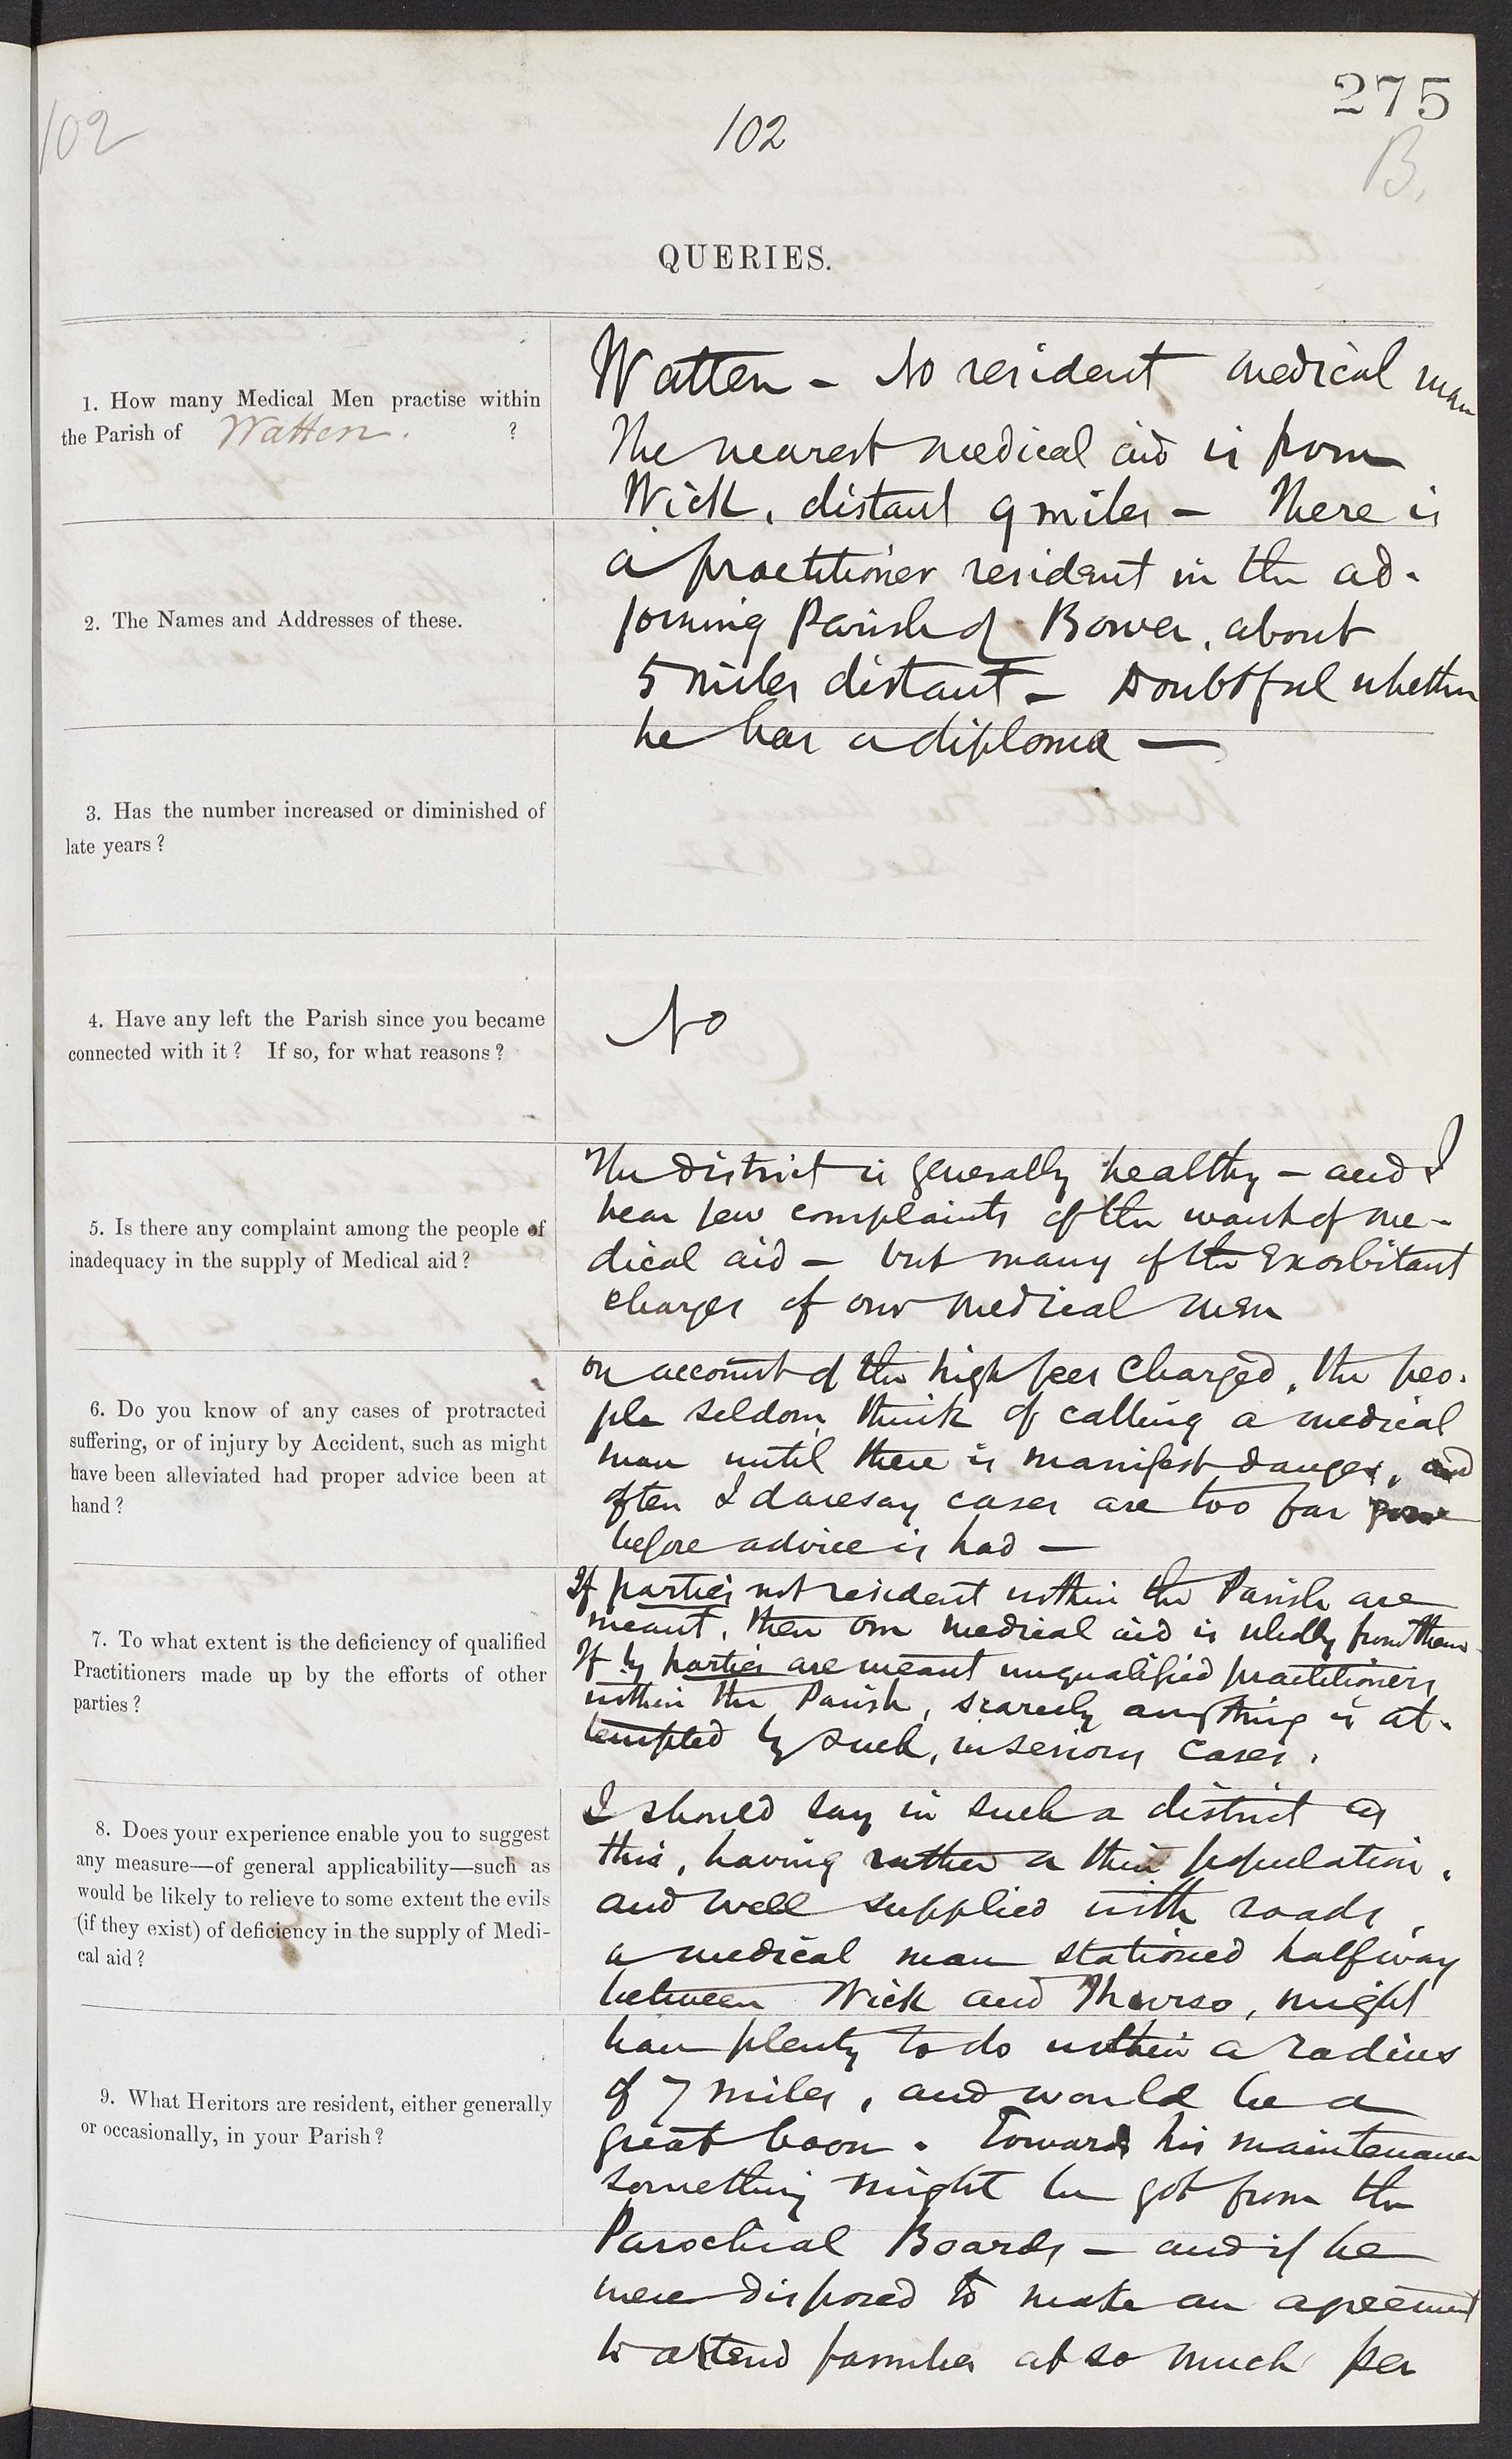 275
102
102
B.
QUERIES.
1. How many Medical Men practise within
the Parish of Watten. ?
Watten - No resident medical man
The nearest medical aid is from
Wick, distant 9 miles - There is
a practitioner resident in the ad-
joining Parish of Bower, about
5 miles distant - Doubtful whether
he has a diploma -
2. The Names and Addresses of these.
3. Has the number increased or diminished of
late years ?
4. Have any left the Parish since you became
connected with it ? If so, for what reasons ?
No
5. Is there any complaint among the people of
inadequacy in the supply of Medical aid ?
The district is generally healthy - and I
hear few complaints of the want of me-
dical aid - but many of the Exorbitant
charges of our medical men
6. Do you know of any cases of protracted
suffering, or of injury by Accident, such as might
have been alleviated had proper advice been at
hand ?
on account of the high fees charged, the peo-
ple seldom think of calling a medical
man until there is manifest danger, and
often I daresay cases are too far gone
before advice is had -
7. To what extent is the deficiency of qualified
Practitioners made up by the efforts of other
parties ?
If parties not resident within the Parish are
meant, then our medical aid is wholly from them
If by parties are meant unqualified practitioners
within the Parish, scarcely anything is at-
tempted by such, in serious cases.
8. Does your experience enable you to suggest
any measure—of general applicability—such as
would be likely to relieve to some extent the evils
(if they exist) of deficiency in the supply of Medi-
cal aid ?
I should say in such a district as
this, having rather a thin population,
and well supplied with roads,
a medical man stationed halfway
between Wick and Thurso, might
have plenty to do within a radius
of 7 miles, and would be a
great boon. Towards his maintenance
something might be got from the
Parochial Boards - and if he
were disposed to make an agreement
to attend families at so much per
9. What Heritors are resident, either generally
or occasionally, in your Parish ?